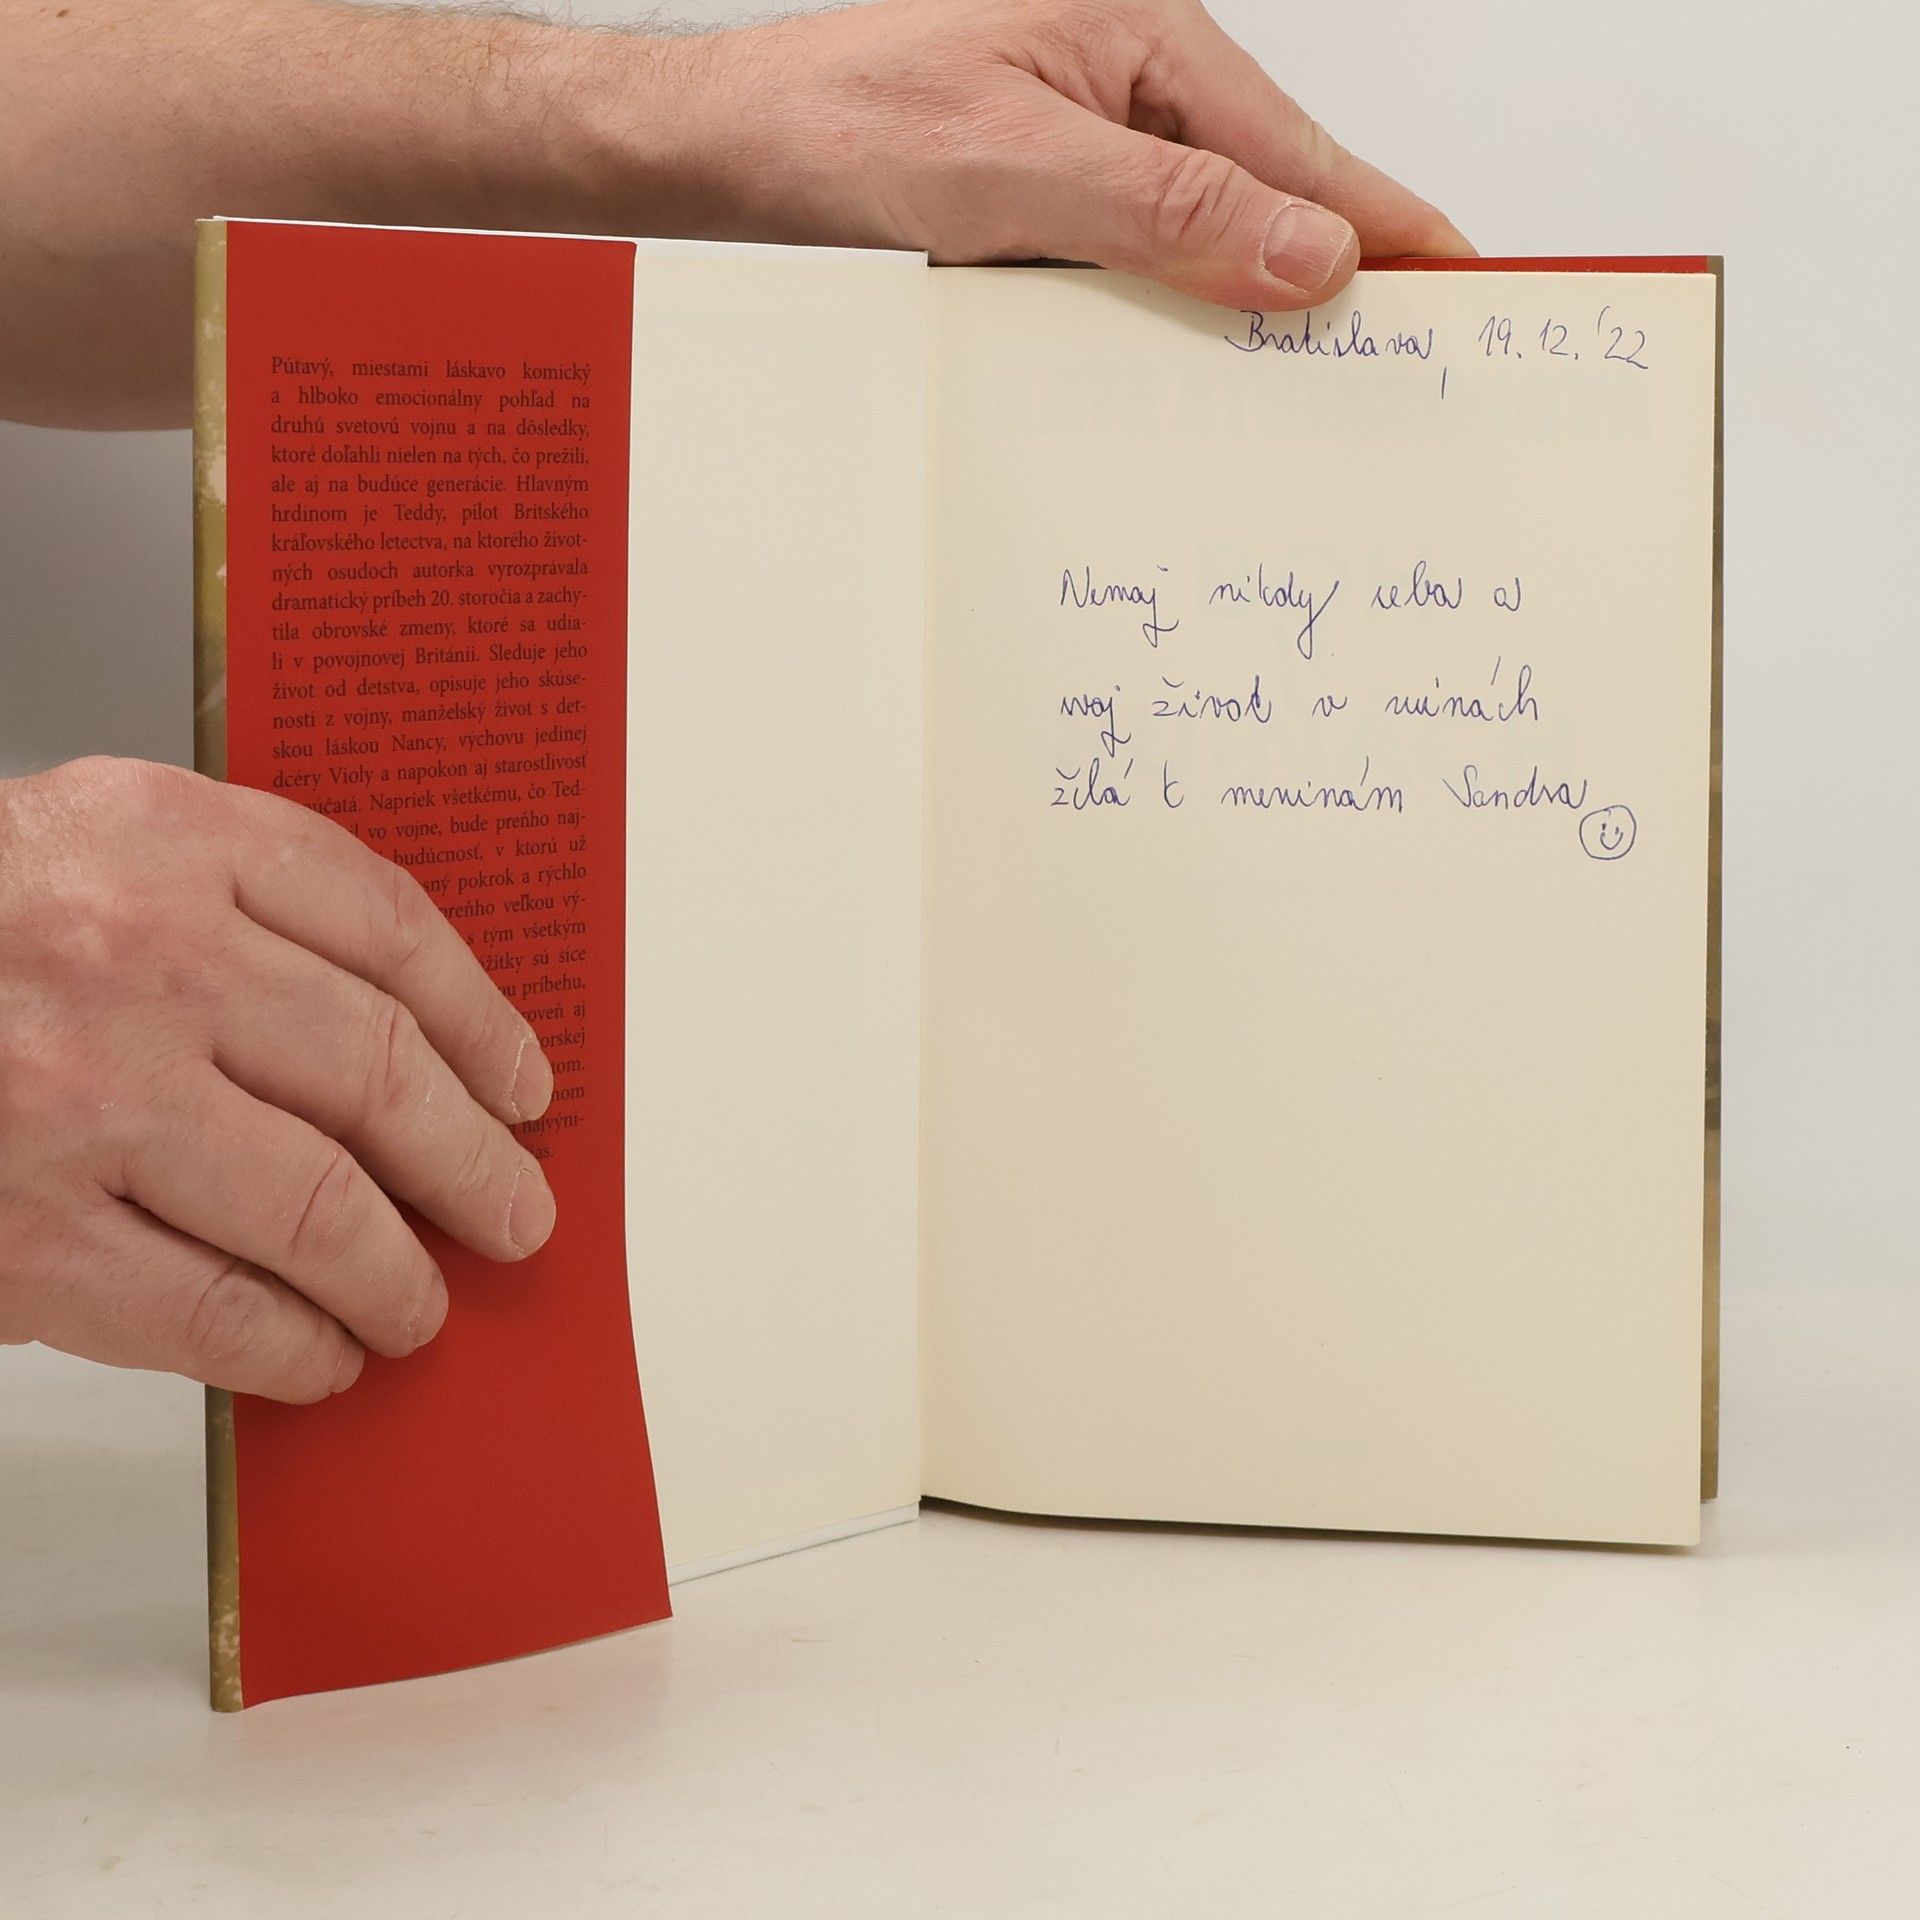 Pútavý, miestami láskavo komický
a hlboko emocionálny pohľad na
druhú svetovú vojnu a na dôsledky,
ktoré doľahli nielen na tých, čo prežili,
ale aj na budúce generácie. Hlavným
hrdinom je Teddy, pilot Britského
kráľovského letectva, na ktorého život-
ných osudoch autorka vyrozprávala
dramatický príbeh 20. storočia a zachy-
tila obrovské zmeny, ktoré sa udia-
li v povojnovej Británii. Sleduje jeho
život od detstva, opisuje jeho skúse-
nosti z vojny, manželský život s det-
skou láskou Nancy, výchovu jedinej
dcéry Violy a napokon aj starostlivosť
účatá. Napriek všetkému, čo Ted-
il vo vojne, bude preňho naj-
budúcnosť, v ktorú už
sný pokrok a rýchlo
preňho veľkou vý-
s tým všetkým
ážitky sú síce
ou príbehu,
roveň aj
orskej
tom.
nom
najvýni-
ias.
Bratislava, 19. 12. '22
Nemaj nikdy seba a
svoj život v ruinách
želá k meninám Sandra